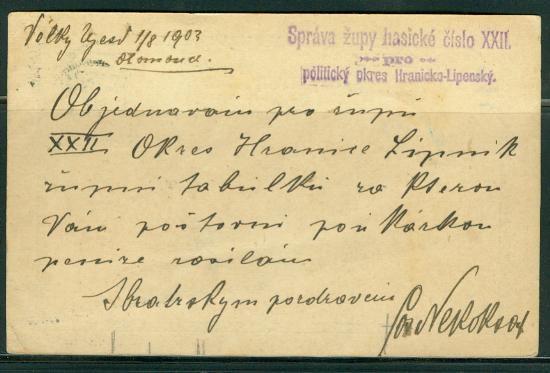 Velký Ujezd 1/8 1903
Olomouc.
Správa župy hasické číslo XXII.
pro
politický okres Hranicko-Lipenský.
Objednavám pro župu
XXII Okres Hranice Lipnik
župní tabulku za kterou
Vám poštovní poukázkou
peníze zasílám
S bratrským pozdravem